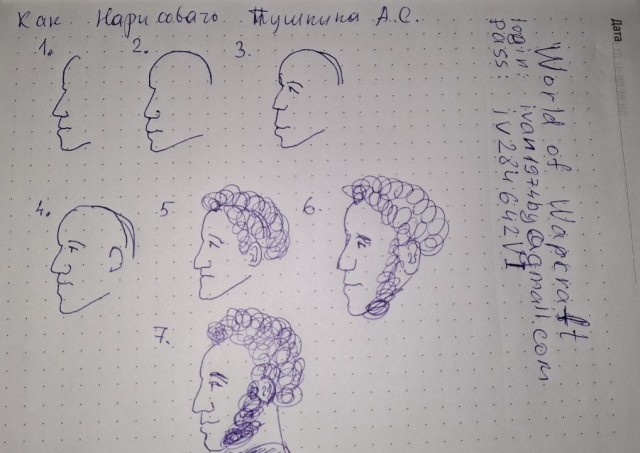 Как Нарисовать Пушкина А.С.
1. 2. 3.
4. 5 6.
7.
Дата
World of Warcraft
login: ivan197hby@gmail.com
pass: iv284642VI